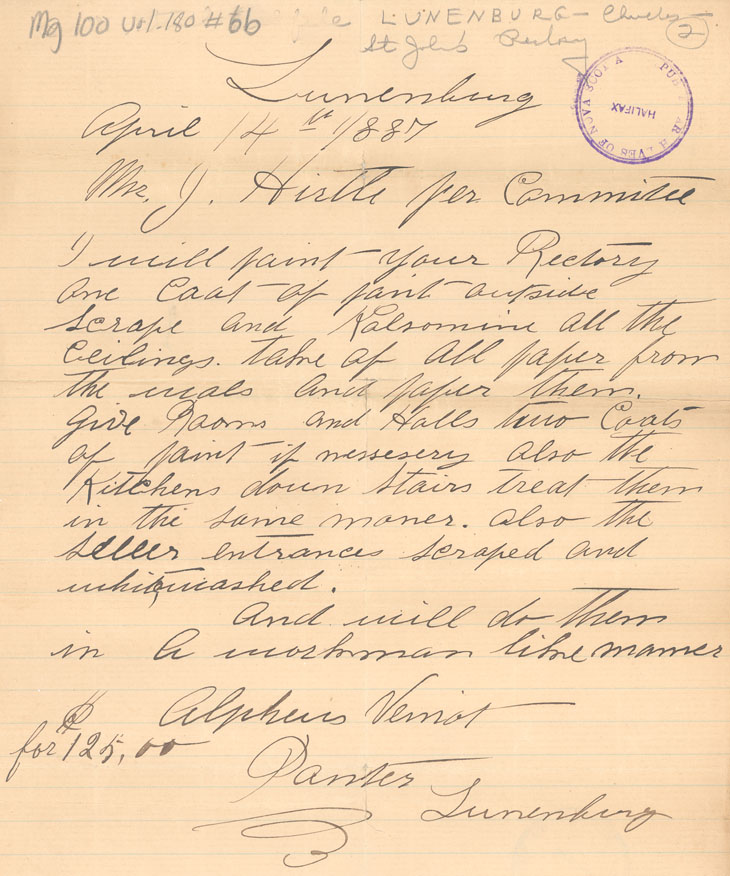 Mg 100 Vol. 180 #66
LUNENBURG - Churches
St John's Rectory
2
PUBLIC ARCHIVES OF NOVA SCOTIA
HALIFAX
Lunenburg
April 14th 1887
Mr. J. Hirtle per Committee
I will paint your Rectory
one Coat of pant outside
Scrape and Kalsomine all the
Ceilings. take of all paper from
the wals and paper them.
Give Rooms and Halls two Coats
of paint if nessesery also the
Kitchens down Stairs treat them
in the same maner. also the
Seller entrances scraped and
whitwashed.
And will do them
in a workman like manner
Alpheus Veniot
for $125,00
Panter
Lunenburg